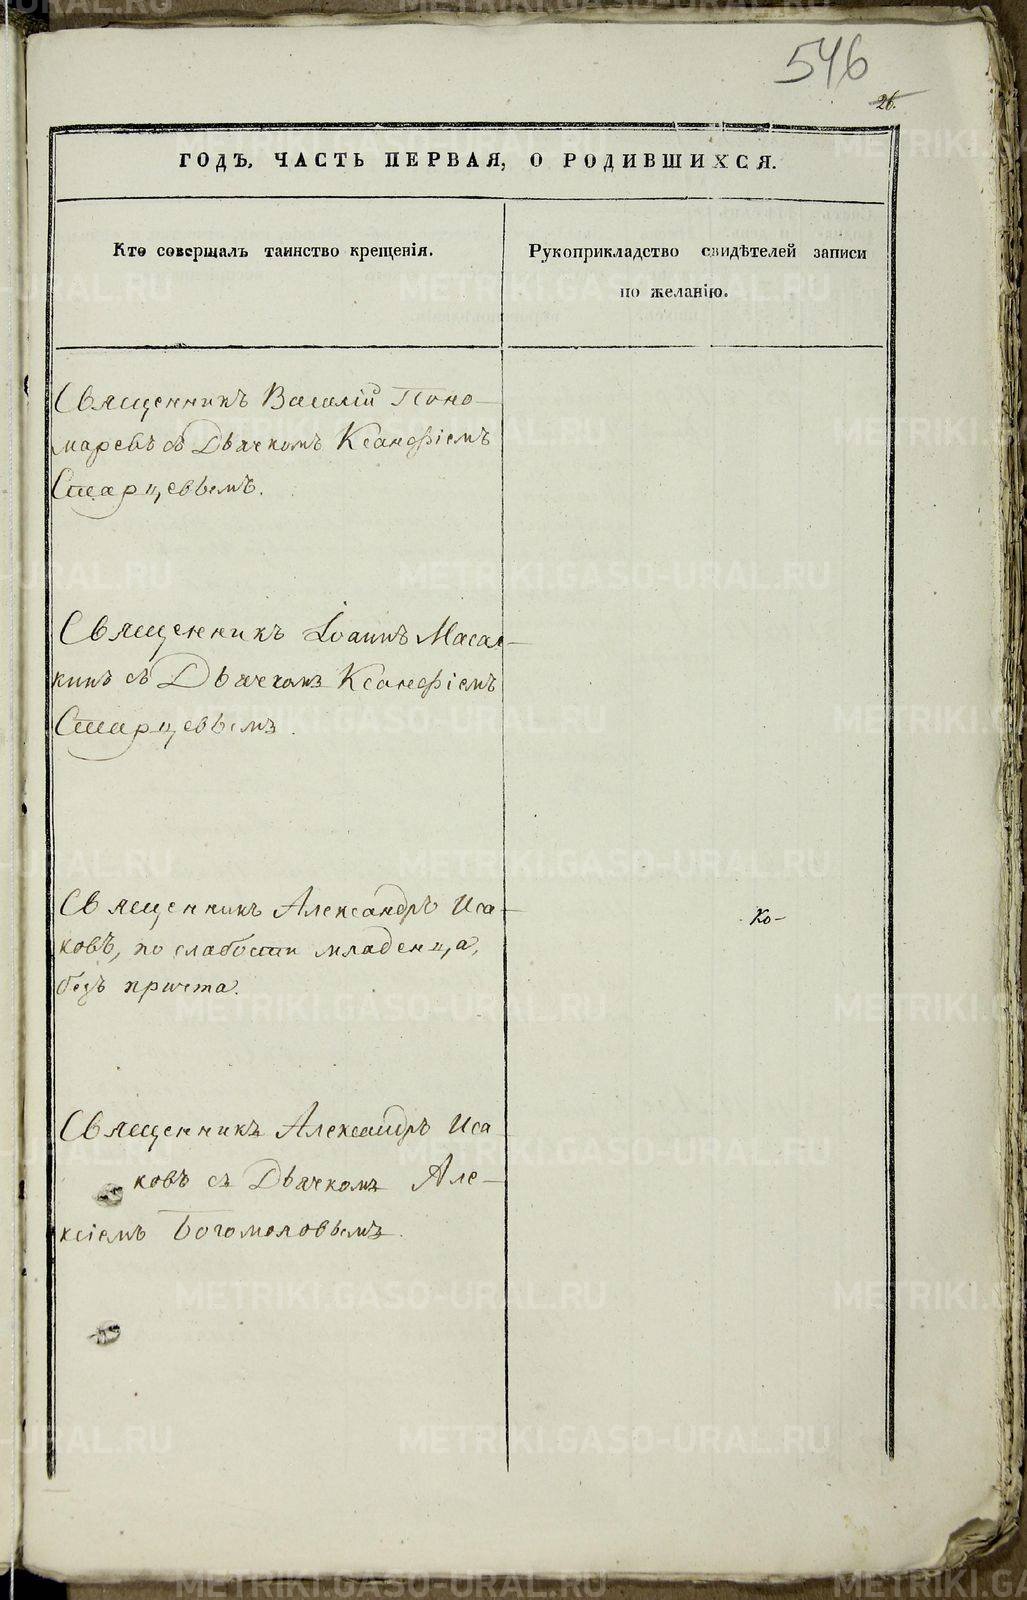 546
26.
ГОДЪ, ЧАСТЬ ПЕРВАЯ, О РОДИВШИХСЯ.
Кто совершалъ таинство крещенія.
Рукоприкладство свидѣтелей записи
по желанію.
Священникъ Василій Поно-
маревъ съ Дьячкомъ Ксанофіемъ
Старцевымъ.
Священникъ Іоаннъ Масал-
кинъ съ Дьячкомъ Ксанофіемъ
Старцевымъ.
Священникъ Александръ Иса-
ковъ, по слабости младенца,
безъ причта.
Ко-
Священникъ Александръ Иса-
ковъ съ Дьячкомъ Але-
ксіемъ Богомоловымъ.
METRIKI.GASO-URAL.RU